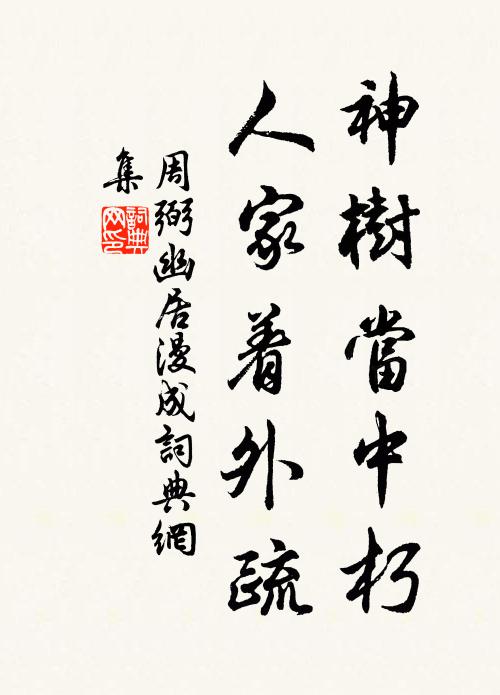 神樹當中朽
人家着外疏
周弼幽居漫成詞典網
集
詞典
网印